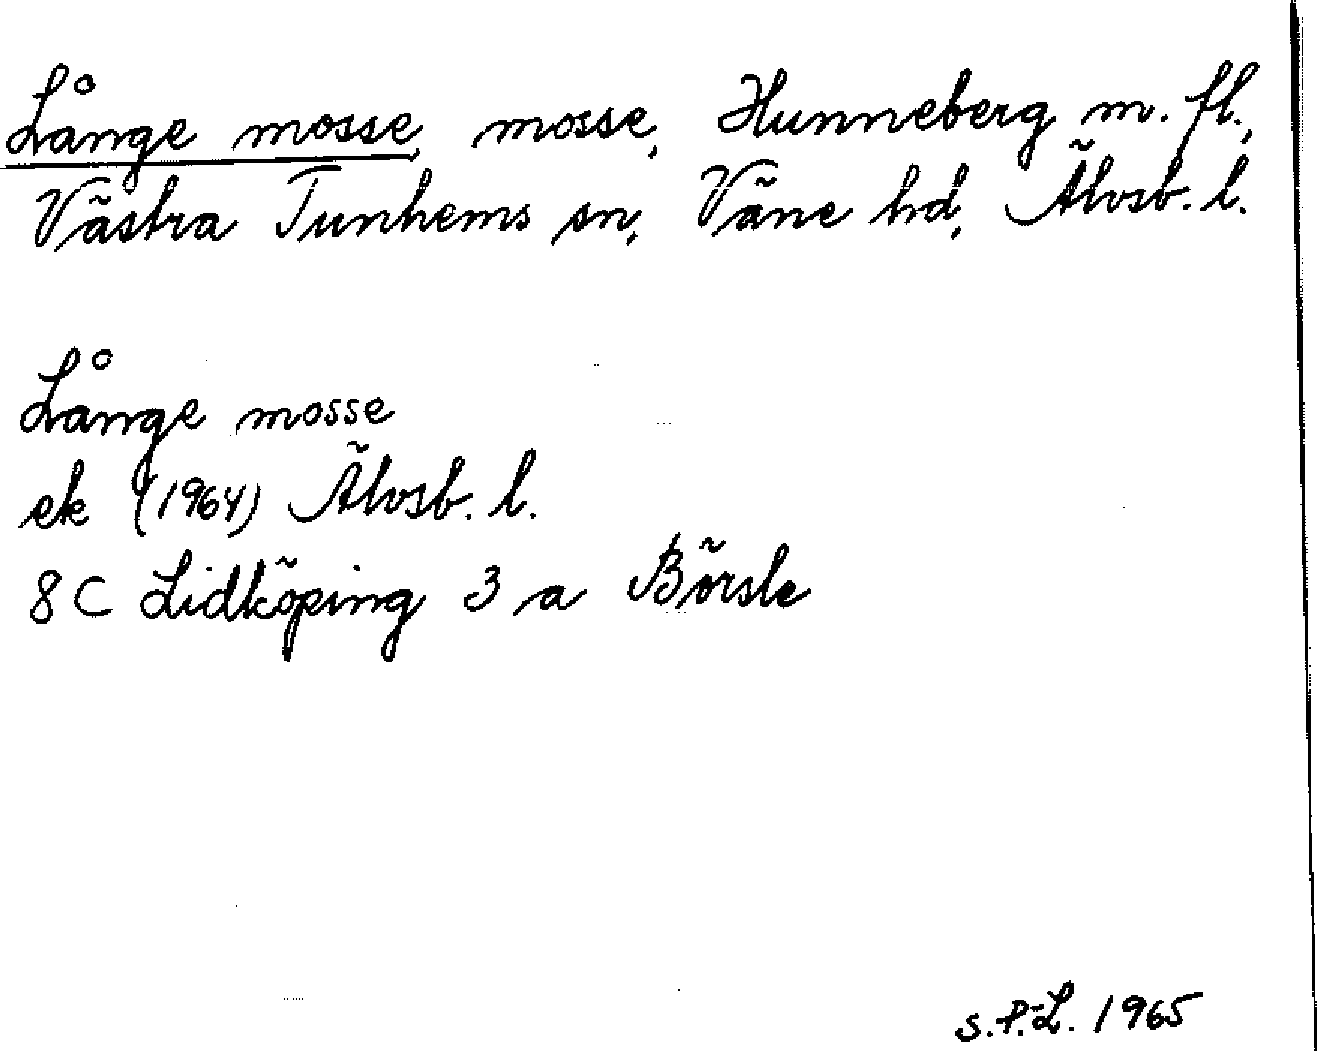 Långe mosse, mosse, Hunneberg m. fl.,
Västra Tunhems sn, Väne hd, Älvsb. l.
Långe mosse
ek (1964) Älvsb. l.
8 C Lidköping 3 a Börsle
S.P.L. 1965